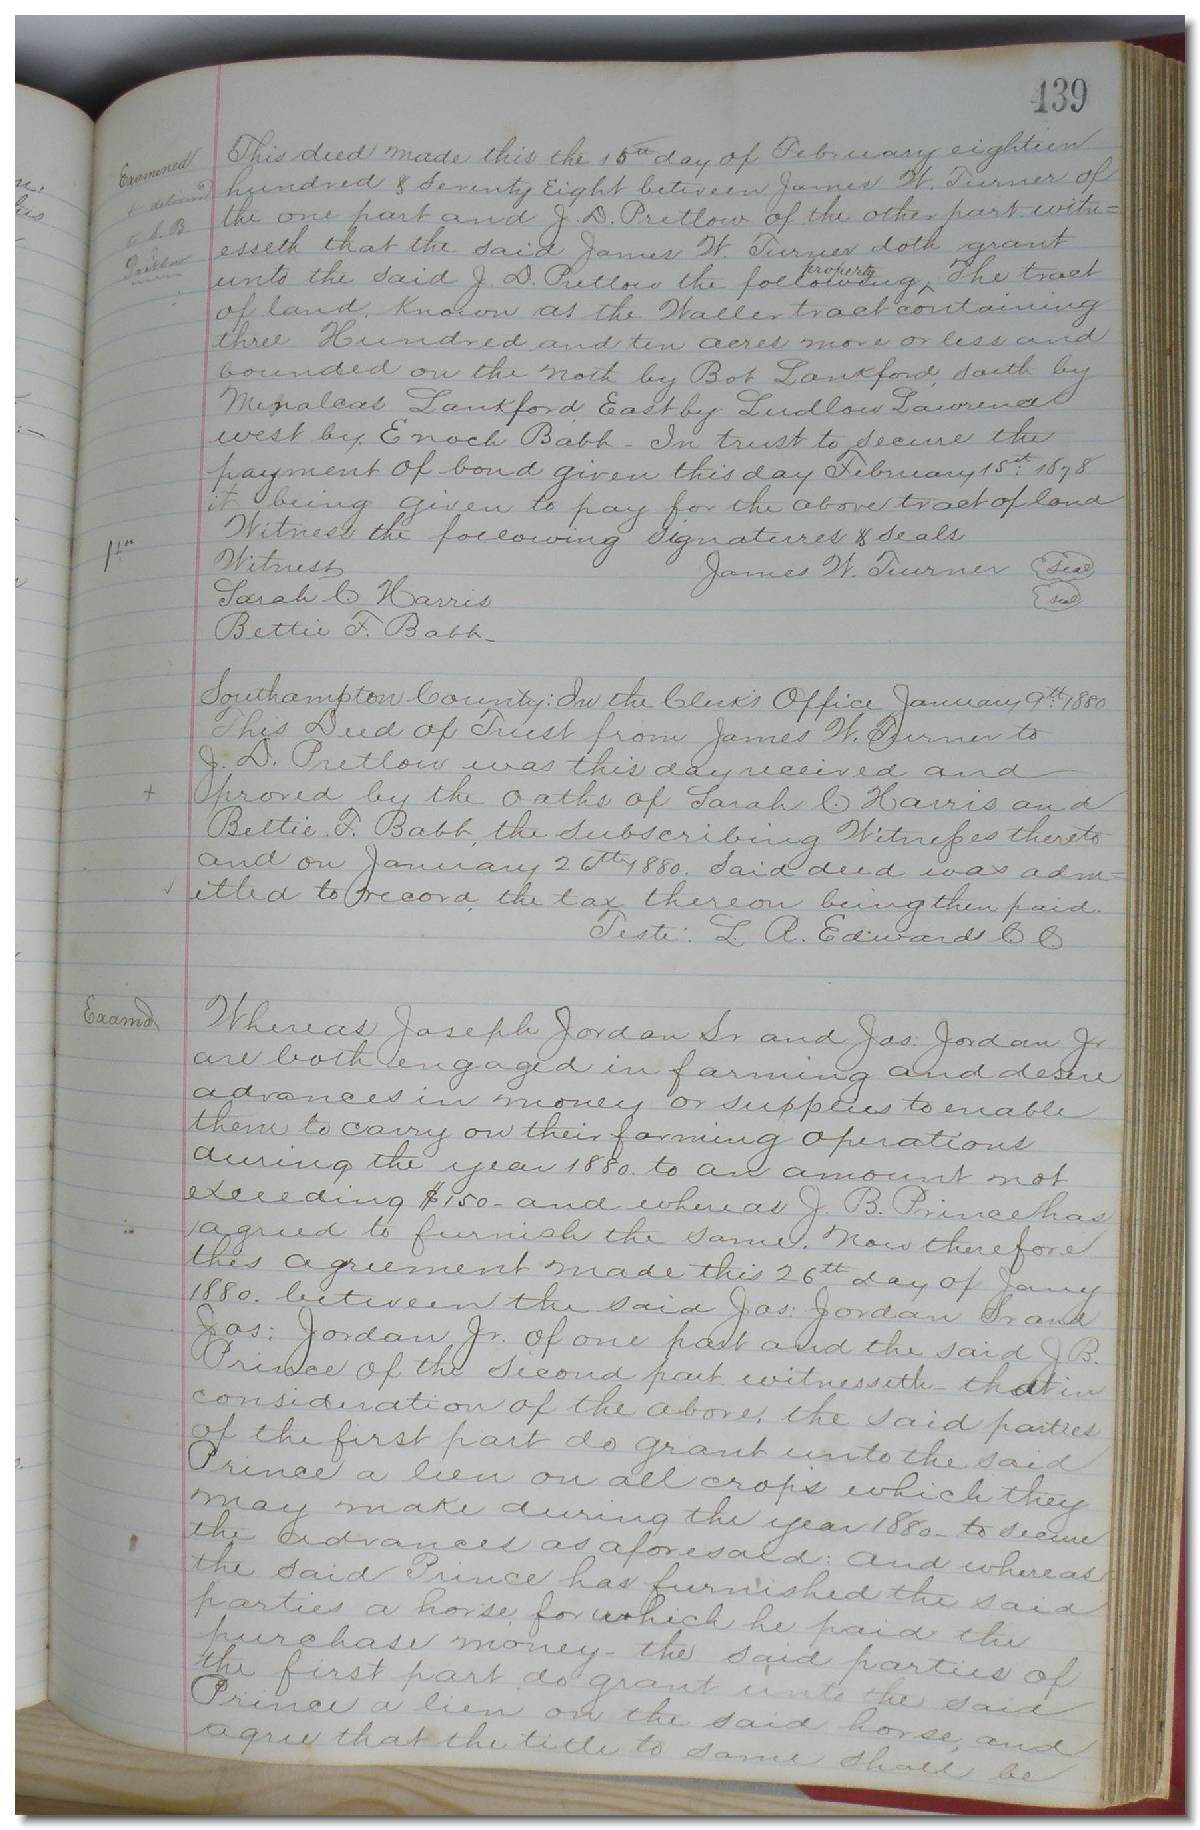 439
Examined
+ delivered
to L. B.
This deed made this the 15th day of February eighteen
hundred & Seventy Eight between James W. Turner of
the one part and J. D. Pretlow of the other part witn=
esseth that the said James W. Turner doth grant
unto the said J. D. Pretlow the following ^property The tract
of land, Known as the Waller tract containing
three Hundred and ten acres more or less and
bounded on the noth by Bob Lankford, south by
Menalcas Lankford East by Ludlow Lawrence
west by Enoch Babb - In trust to secure the
payment of bond given this day February 15st 1878
it being given to pay for the above tract of land
Witness the following signatures & seals
Witness James W. Turner Seal
Sarah C Harris seal
Bettie F. Babb
Southampton County: In the Clerk's Office January 9th 1880
This Deed of Trust from James W. Turner to
J. D. Pretlow was this day received and
+ proved by the oaths of Sarah C Harris and
Bettie F. Babb, the subscribing Witnesses thereto
and on January 26th 1880. said deed was adm=
itted to record, the tax thereon being then paid.
Teste: L. R. Edwards C C
Examd
Whereas Joseph Jordan Sr and Jos. Jordan Jr
are both engaged in farming and desire
advances in money or supplies to enable
them to carry on their farming operations
during the year 1880. to an amount not
exceeding $150 - and whereas J. B. Prince has
agreed to furnish the same. Now therefore
this agreement made this 26th day of Jany
1880. between the said Jos: Jordan Sr and
Jos: Jordan Jr. of one part and the said J B.
Prince of the second part witnesseth - that in
consideration of the above, the said parties
of the first part do grant unto the said
Prince a lien on all crops which they
may make during the year 1880 - to secure
the advances as aforesaid: and whereas
the said Prince has furnished the said
parties a horse for which he paid the
purchase money - the said parties of
the first part do grant unto the said
Prince a lien on the said horse, and
agree that the title to same shall be